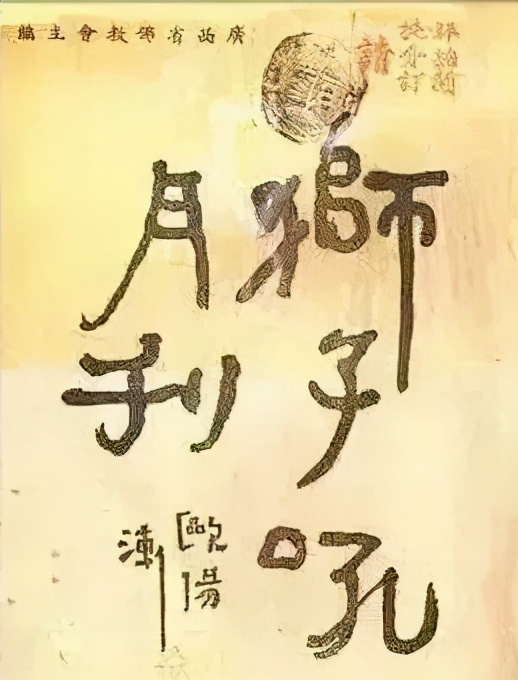 廣西省佛教會主編
獅子吼
月刊
歐陽
漸